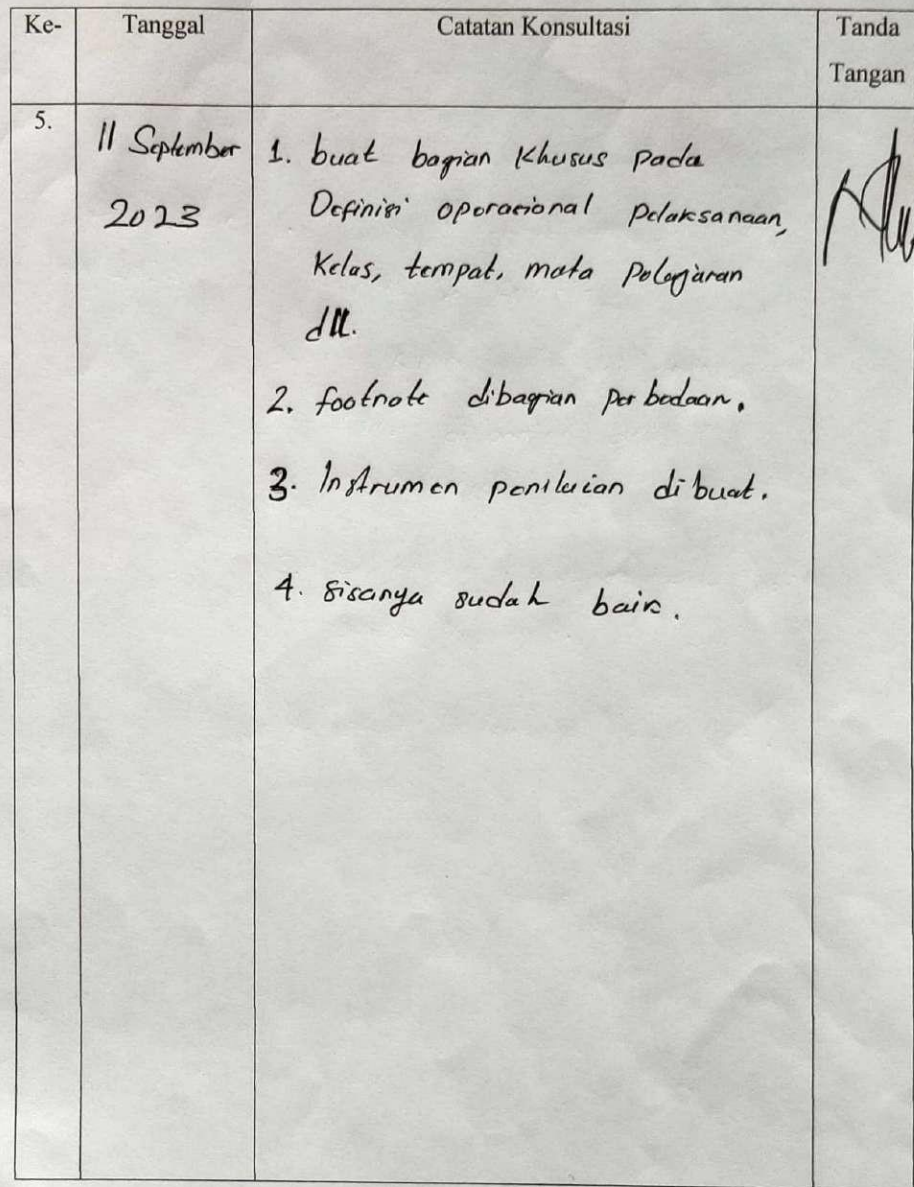 Ke- Tanggal Catatan Konsultasi Tanda
Tangan
5.
11 September
2023
1. buat bagian Khusus pada
Definisi operasional pelaksanaan,
Kelas, tempat, mata pelajaran
dll.
2. footnote dibagian perbedaan.
3. Instrumen penilaian dibuat.
4. sisanya sudah baik.